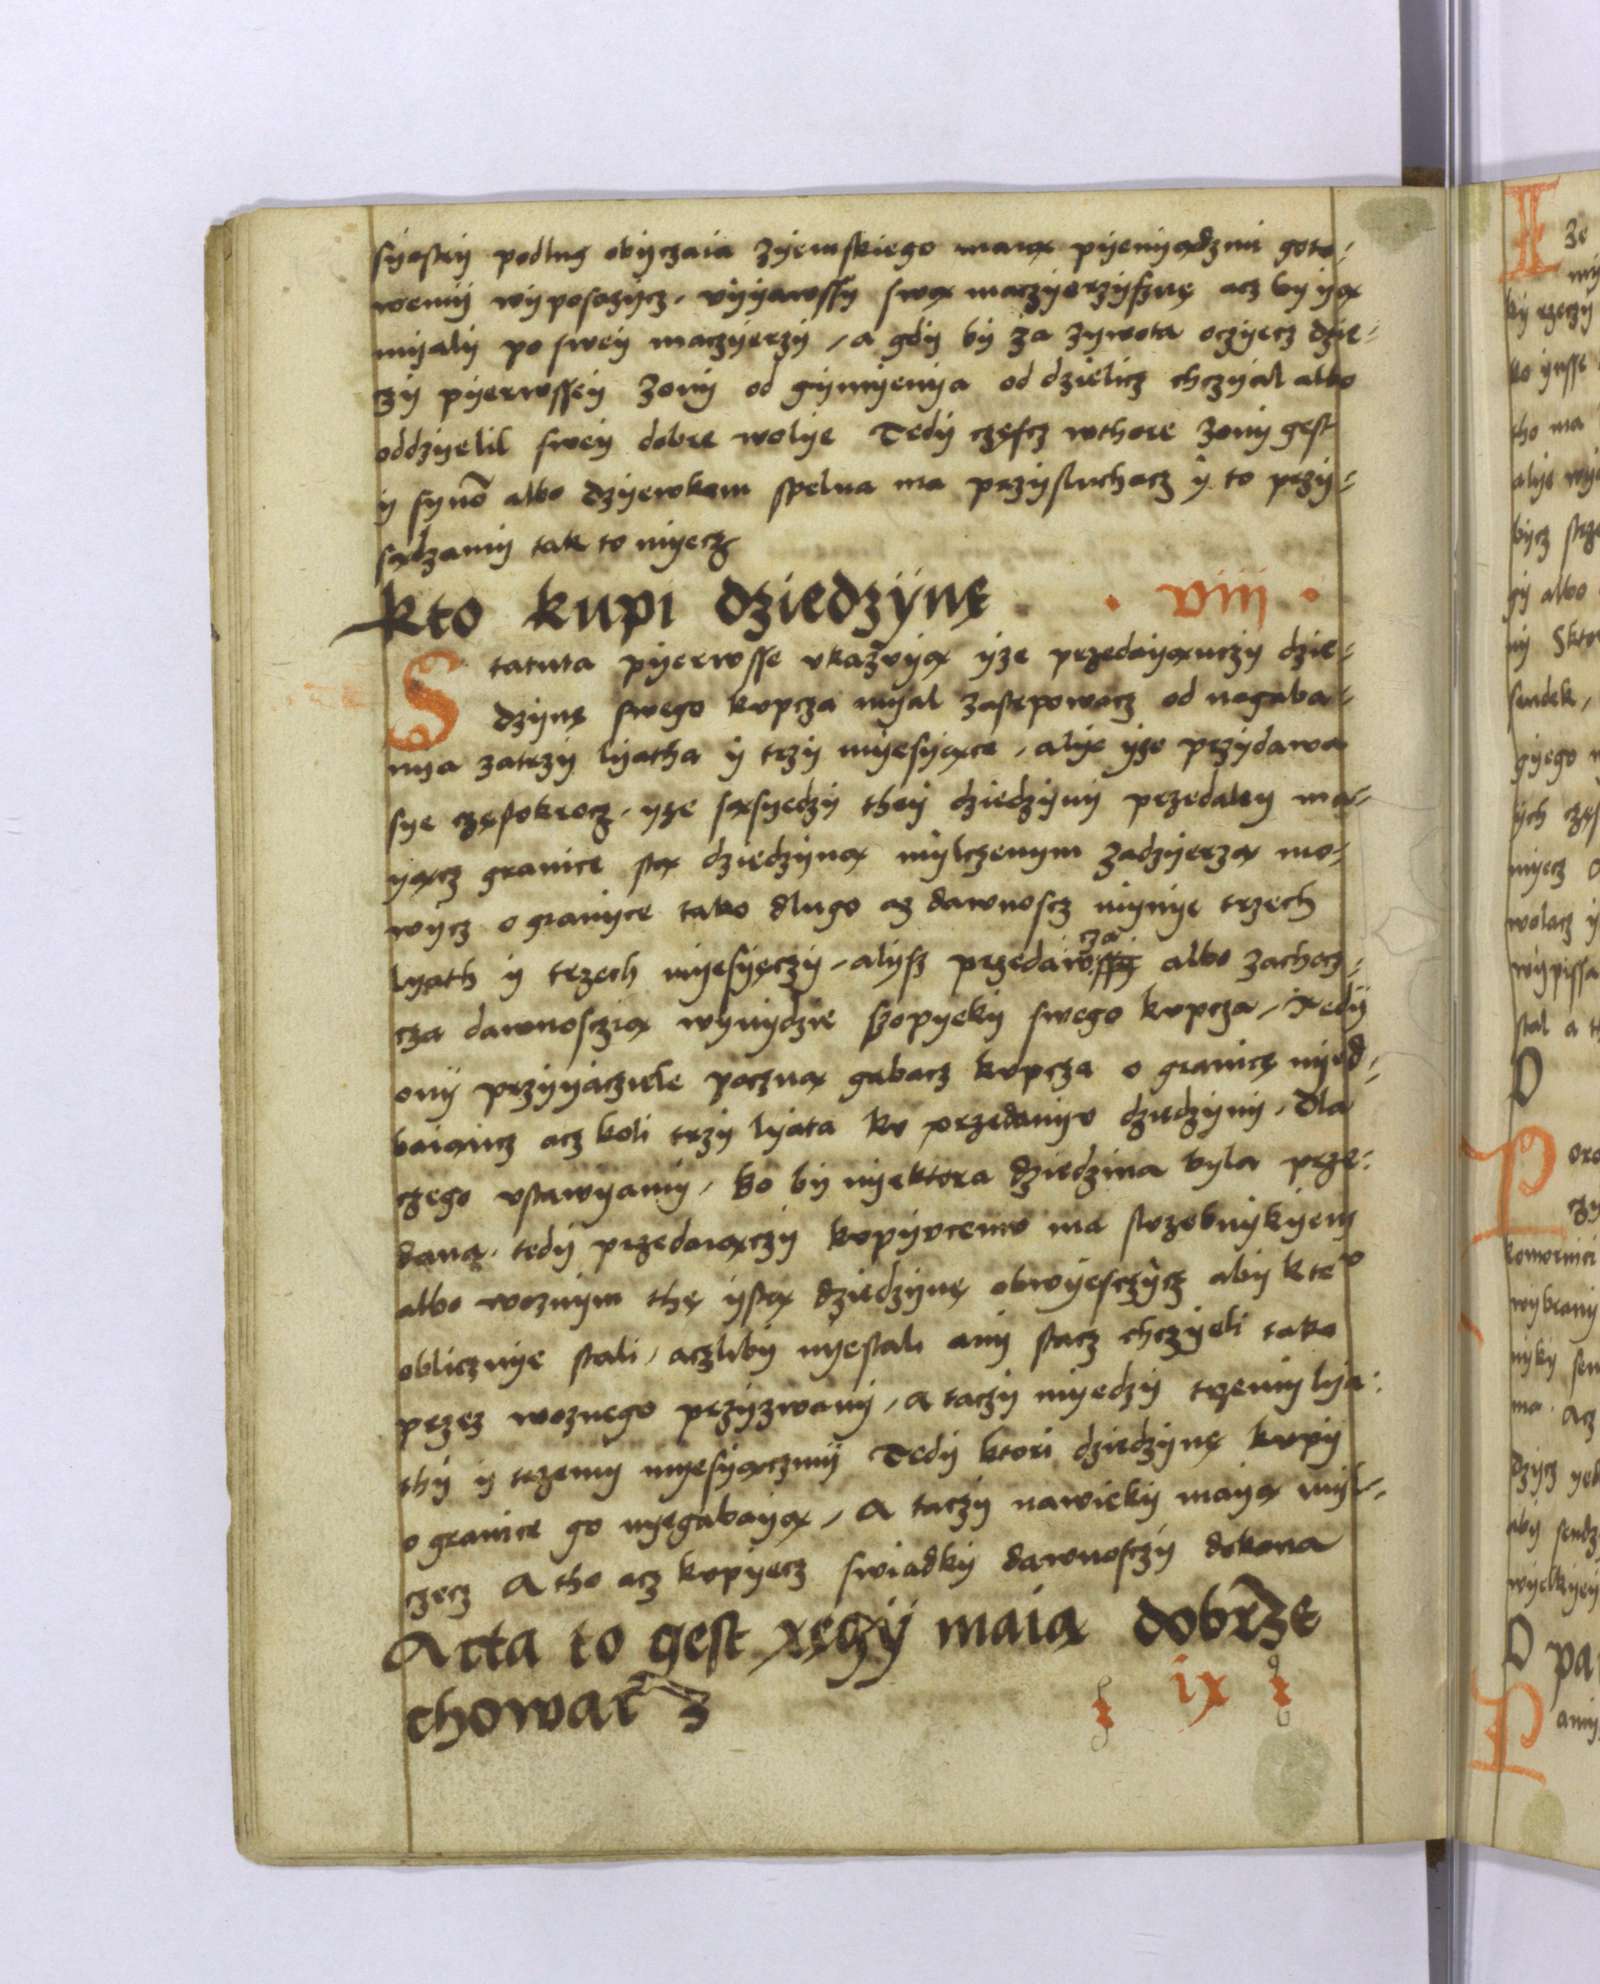 syostry podlug obyczaia zyemskiego maią pyenyądzmi goto-
wemy wyposazycz, vyyąwssy swą maczyerzysznę acz by yą
myaly po swey maczyerzy, a gdy by za zywota oczyecz dzie-
czy pyerwssey zony od gymyenya od dzielicz chczyal albo
oddzyelil swey dobre wolye Tedy częscz wthore zony gest
y synō albo dzyewkam spelna ma przysluchacz y to przy-
sądzamy tak to myecz
kto kupi dziedzynę . viii .
Statuta pyerwsse vkazvyą yze przedayąuczy dzie-
dzynę swego kvpcza myal zastepowacz od nagaba-
nya zatrzy lyatha y trzy myesyące, alye yze przydawa
sye częstokrocz, yze sąsyedzy they dziedzyny przedaley ma-
yącz granice stą dziedzyną mylczenym zadzyerzą mo-
wycz o granyce tako dlugo az dawnoscz mynye trzech
lyath y trzech myesyęczy, alysz przedawcza albo zachocz-
cza dawnoscią wynydzie szopyeky swego kvpcza, Tedy
ony przyyaczyele poczną gabacz kvpcza o granicę nyed-
baiąucz acz koli trzy lyata kv przedanyv dziedzyny, dla
czego vstawyamy, ko by nyektora dziedzina byla prze-
daną, tedy przedaiączy kvpyvcemv ma stvzebnykyem
albo woznym thę ystą dziedzynę obwyesczycz aby ktev
oblicznye stali, aczliby nyestali any stacz chczyeli tako
przez woznego przyzwany, A taczy myedzy trzemy lya-
thy y trzemy myesyączmy Tedy ktori dziedzynę kvpy
o granice go nyegabayą, A taczy nawieky mayą myl-
czecz A tho acz kvpyecz swiadky dawnosczy dokona
Acta to gest xęgy maią dobrze
chowacz ix